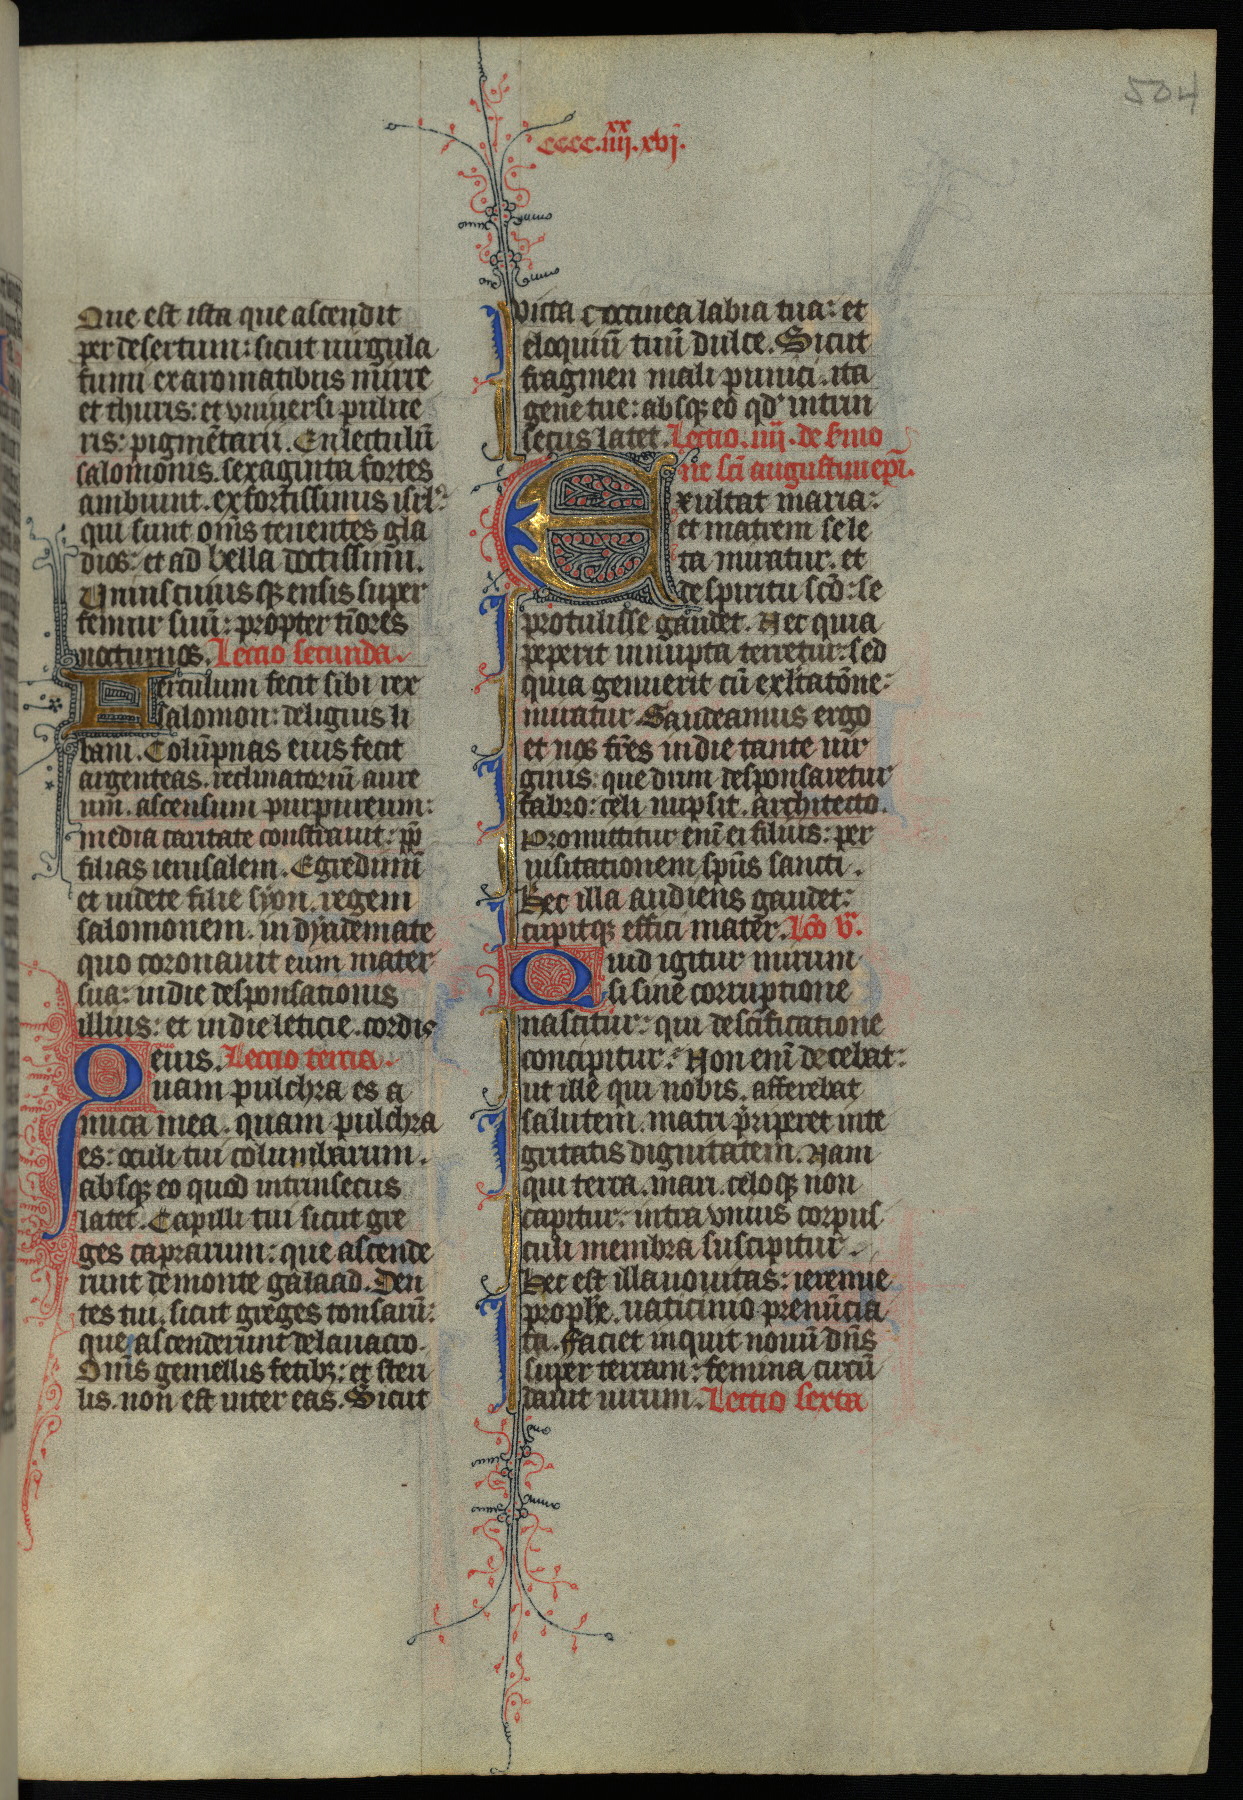 504
xx
cccc.iiij.xvj.
Que est ista que ascendit
per desertum: sicut uirgula
fumi ex aromatibus mirre
et thuris: et vniuersi pulue
ris: pigmẽtarii. En lectulũ
salomonis. sexaginta fortes
ambiunt. ex fortissimis isrl̾:
qui sunt om̃s tenentes gla
dios: et ad bella doctissimi.
Vniuscuiusqꝫ ensis super
femur suũ: propter tĩores
nocturnos. Lectio secunda.
Ferculum fecit sibi rex
salomon: de lignis li
bani. Colũpnas eius fecit
argenteas. reclinatoriũ aure
um. ascensum purpureum:
media caritate constrauit: ꝓp̃
filias ierusalem. Egredimĩ
et uidete filie syon. regem
salomonem. in dyademate
quo coronauit eum mater
sua: in die desponsationis
illius: et in die leticie. cordis
eius. Lectio tercia.
Quam pulchra es a
mica mea. quam pulchra
es: oculi tui columbarum.
absqꝫ eo quod intrinsecus
latet. Capilli tui sicut gre
ges caprarum: que ascende
runt de monte galaad. Den
tes tui. sicut greges tonsarũ:
que ascenderunt de lauacro.
Om̃s gemellis fetibꝫ: et steri
lis. non est inter eas. Sicut
vitta coccinea labia tua: et
eloquiũ tuũ dulce. Sicut
fragmen mali punici. ita
gene tue: absqꝫ eo qd̾ intrin
secus latet. Lectio. iiij. de s̃mo
ne sc̃i augustini ep̃i.
Exultat maria:
et matrem se le
ta miratur. et
de spiritu sc̃o: se
protulisse gaudet. Nec quia
peperit innupta terretur: sed
quia genuerit cũ exl̃tatõne:
miratur. Gaudeamus ergo
et nos fr̃es in die tante uir
ginis: que dum desponsaretur
fabro: celi nupsit. architecto.
Promittitur enĩ ei filius: per
uisitationem sp̃us sancti.
Hec illa audiens gaudet:
cupitqꝫ effici mater. Lc̃o v̾.
Quid igitur mirum
si sine corruptione
nascitur: qui de sc̃ificatione
concipitur. Non enĩ decebat:
ut ille qui nobis. afferebat
salutem. matri p̃riperet inte
gritatis dignitatem. Nam
qui terra. mari. celoqꝫ non
capitur: intra vnius corpus
culi membra suscipitur.
Hec est illa nouitas: ieremie
prophe. uaticinio prenũcia
ta. Faciet inquit nouũ dñs
super terram: femina circũ
dauit uirum. Lectio sexta